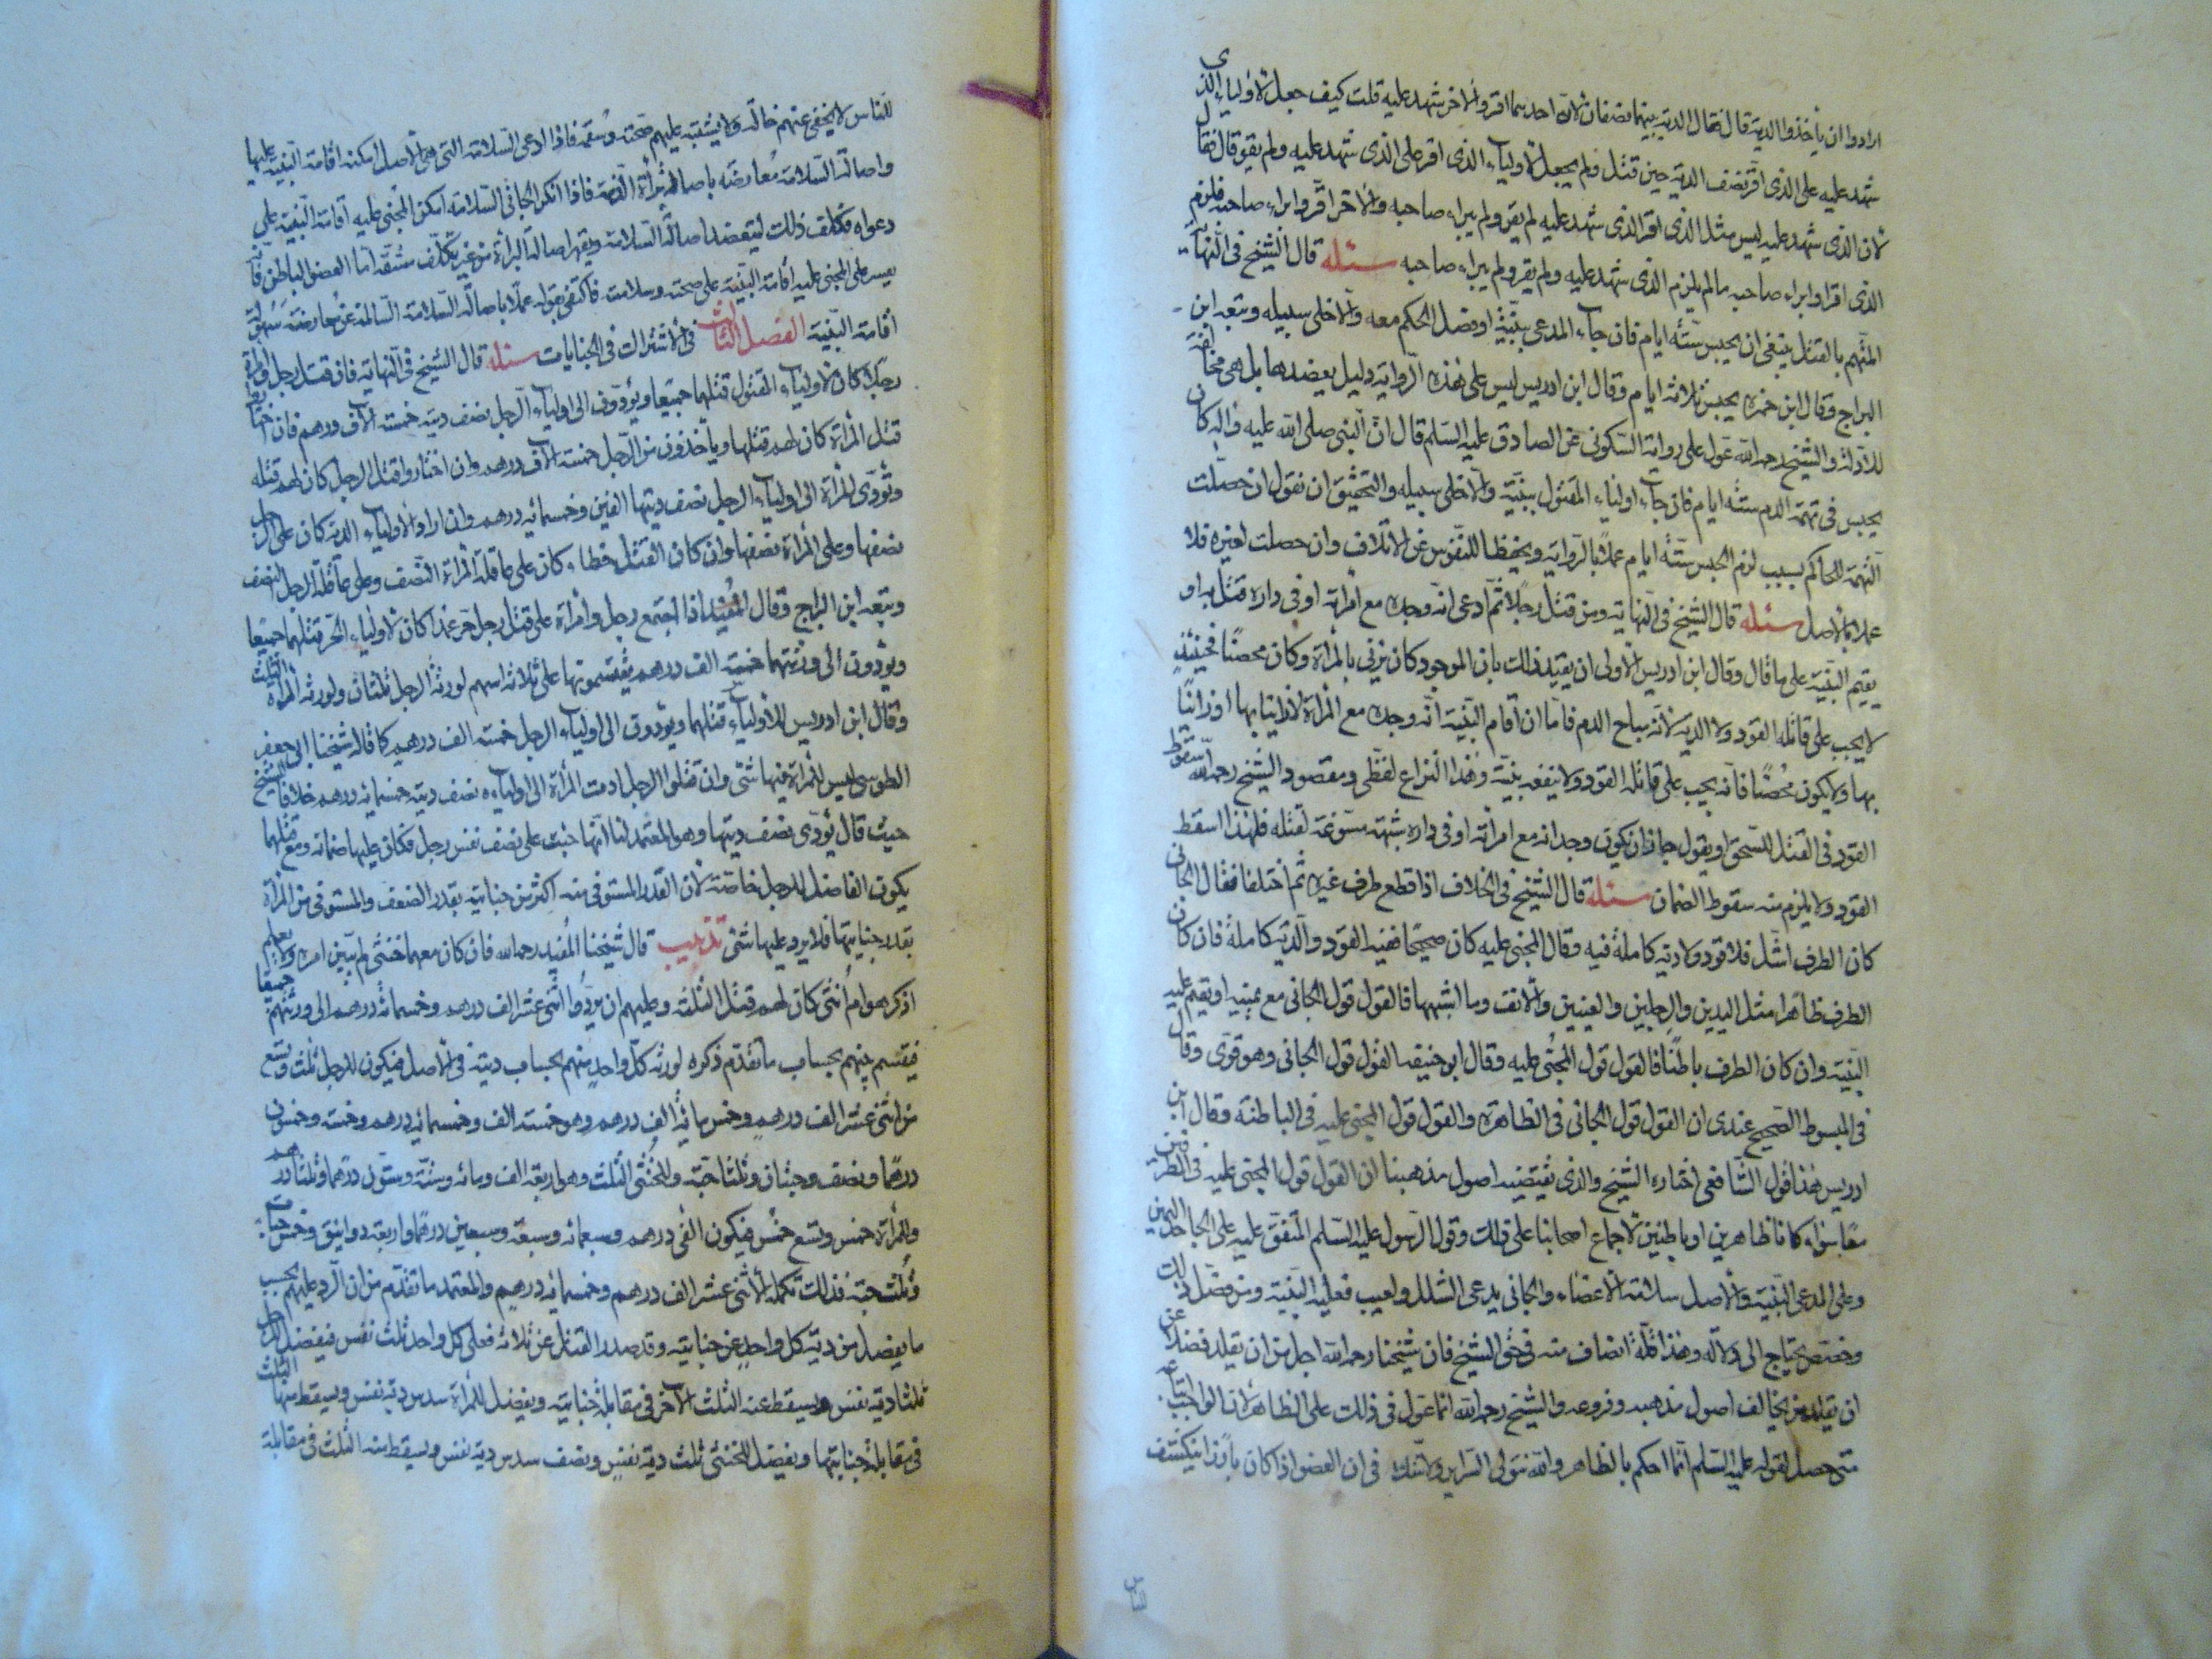 ارادوا ان يأخذوا الدية قال فقال الدية بينهما نصفان لان احدهما اقر والاخر شهد عليه قلت كيف جعل لاولياء الذى
شهد عليه على الذى اقر نصف الدية حين قتل ولم يجعل لاولياء الذى اقر على الذى شهد عليه ولم يقر قال فقال
لان الذى شهد عليه ليس مثل الذى اقر الذى شهد عليه لم يقر ولم يبراء صاحبه والاخر اقر وابراء صاحبه فلزم
الذى اقر وابراء صاحبه مالم يلزم الذى شهد عليه ولم يقر ولم يبراء صاحبه مسئله قال الشيخ فى النهاية
المتهم بالقتل ينبغى ان يحبس ستة ايام فان جاء المدعى ببينة او فصل الحكم معه والا خلى سبيله وتبعه ابن
البراج وقال ابن حمزه يحبس ثلاثة ايام وقال ابن ادريس ليس على هذه الرواية دليل يعضدها بل هى مخالفة
للادلة والشيخ رحمه الله عول على رواية السكونى عن الصادق عليه السلم قال ان النبى صلى الله عليه واله كان
يحبس فى تهمة الدم ستة ايام فان جاء اولياء المقتول ببينة والا خلى سبيله والتحقيق ان نقول ان حصلت
التهمة للحاكم بسبب لزم الحبس ستة ايام عملا بالرواية وتحفظا للنفوس عن الاتلاف وان حصلت لغيره فلا
عملا بالاصل مسئله قال الشيخ فى النهاية ومن قتل رجلا ثم ادعى انه وجده مع امرأته او فى داره قتل به او
يقيم البينة على ما قال وقال ابن ادريس الاولى ان يقيد ذلك بان الموجود كان يزنى بالمرأة وكان محصنا فحينئذ
لا يجب على قاتله القود ولا الدية لانه مباح الدم فاما ان اقام البينة انه وجده مع المرأة لا زانيا بها او زانيا
بها ولا يكون محصنا فانه يجب على قاتله القود ولا ينفعه بينة وهذا النزاع لفظى ومقصود الشيخ رحمه الله سقوط
القود فى القتل المستحق او يقول جاز ان يكون وجدانه مع امرأته او فى داره شبهة مسوغة لقتله فلهذا اسقط
القود ولا يلزم منه سقوط الضمان مسئله قال الشيخ فى الخلاف اذا قطع طرف غيره ثم اختلفا فقال الجانى
كان الطرف اشل فلا قود ولا دية كاملة فيه وقال المجنى عليه كان صحيحا ففيه القود والدية كاملة فان كان
الطرف ظاهرا مثل اليدين والرجلين والعينين والانف وما اشبهها فالقول قول الجانى مع يمينه او يقيم عليه
البينة وان كان الطرف باطنا فالقول قول المجنى عليه وقال ابو حنيفه القول قول الجانى وهو قوى وقال
فى المبسوط الصحيح عندى ان القول قول الجانى فى الظاهرة والقول قول المجنى عليه فى الباطنة وقال ابن
ادريس هذا قول الشافعى اختاره الشيخ والذى تقتضيه اصول مذهبنا ان القول قول المجنى عليه فى الطرفين
معا سواء كانا ظاهرين او باطنين لاجماع اصحابنا على ذلك وقول الرسول عليه السلم المتفق عليه على الجاحد اليمين
وعلى المدعى البينة والاصل سلامة الاعضاء والجانى يدعى الشلل والعيب فعليه البينة ومن فصل ذلك
وخصص يحتاج الى دلالة وهذا قلة انصاف منه فى حق الشيخ فان شيخنا رحمه الله اجل من ان يقلد فضلا عن
ان يقلد من يخالف اصول مذهبه وفروعه والشيخ رحمه الله انما عول فى ذلك على الظاهر لان الواجب اتباعه
متى حصل لقوله عليه السلم انما احكم بالظاهر والله متولى السراير ولا شك فى ان العضو اذا كان بارزا ينكشف
للناس
للناس لا يخفى عنهم حاله ولا يشتبه عليهم صحته وسقمه فاذا ادعى السلامة التى هى الاصل امكنه اقامة البينة عليها
واصالة السلامة معارضة باصالة براءة الذمة فاذا انكر الجانى السلامة امكن المجنى عليه اقامة البينة على
دعواه فكلف ذلك ليعتضد اصالة السلامة ويقهر اصالة البراءة من غير تكلف مشقة اما العضو الباطن فانه
يعسر على المجنى عليه اقامة البينة على صحته وسلامته فاكتفى بقوله عملا باصالة السلامة السالمة عن معارضة سهولة
اقامة البينة الفصل الثالث فى الاشتراك فى الجنايات مسئله قال الشيخ فى النهاية فان قتل رجل وامرأة
رجلا كان لاولياء المقتول قتلهما جميعا ويؤدون الى اولياء الرجل نصف ديته خمسة آلاف درهم فان اختاروا
قتل المرأة كان لهم قتلها ويأخذون من الرجل خمسة آلاف درهم وان اختاروا قتل الرجل كان لهم قتله
وتؤدى المرأة الى اولياء الرجل نصف ديتها الفين وخمسمائه درهم وان ارادوا اولياء الدية كان على الرجل
نصفها وعلى المرأة نصفها وان كان القتل خطاء كان على عاقلة المرأة النصف وعلى عاقلة الرجل النصف
وتبعه ابن البراج وقال المفيد اذا اجتمع رجل وامرأة على قتل رجل حر عمدا كان لاولياء الحر قتلهما جميعا
ويؤدون الى ورثتهما خمسة الف درهم يقتسمونها على ثلاثة اسهم لورثة الرجل ثلثان ولورثة المرأة الثلث
وقال ابن ادريس للاولياء قتلهما ويؤدون الى اولياء الرجل خمسة الف درهم كما قاله شيخنا ابى جعفر
الطوسى ليس للمرأة فيها شئ وان قتلوا الرجل ادت المرأة الى اولياءه نصف دية خمسمائه درهم خلافا للشيخ
حيث قال يؤدى نصف ديتها وهو المعتمد لنا انها جنت على نصف نفس رجل فكان عليها ضمانه ومع قتلهما
يكون الفاضل للرجل خاصة لان القدر المستوفى منه اكثر من جنايته بقدر الضعف والمستوفى من المرأة
بقدر جنايتها فلا يرد عليها شئ تذنيب قال شيخنا المفيد رحمه الله فان كان معهما خنثى لم يبين امره ولا يعلم
اذكر هو ام انثى كان لهم قتل الثلثة وعليهم ان يردوا اثنى عشر الف درهم وخمسمائة درهم الى ورثتهم جميعا
فيقتسم بينهم بحساب ما تقدم ذكره لورثة كل واحد منهم بحساب ديته فى الاصل فيكون للرجل ثلث وتسع
من اثنى عشر الف درهم وخمس مائة الف درهم وهو خمسة الف وخمسمائه درهم وخمسة وخمسون
درهما ونصف وحبتان وثلثا حبة وللخنثى الثلث وهو اربعة الف ومائه وستة وستون درهما وثلثا درهم
وللمرأة خمس وتسع خمس فيكون الفى درهم وسبعمائه وسبعة وسبعين درهما واربعة دوانيق وخمس حبات
وثلث حبة فذلك تكملة الاثنى عشر الف درهم وخمسمائه درهم والمعتمد ما تقدم من ان الرد عليهم بحسب
ما يفضل من دية كل واحد عن جنايته وقد صدر القتل عن ثلاثة فعلى كل واحد ثلث نفس فيفضل للرجل
ثلثا دية نفس ويسقط عنه الثلث الآخر فى مقابلة جنايته ويفضل للمرأة سدس دية نفس ويسقط منها الثلث
فى مقابلة جنايتها ويفضل للخنثى ثلث دية نفس ونصف سدس دية نفس ويسقط منه الثلث فى مقابلة